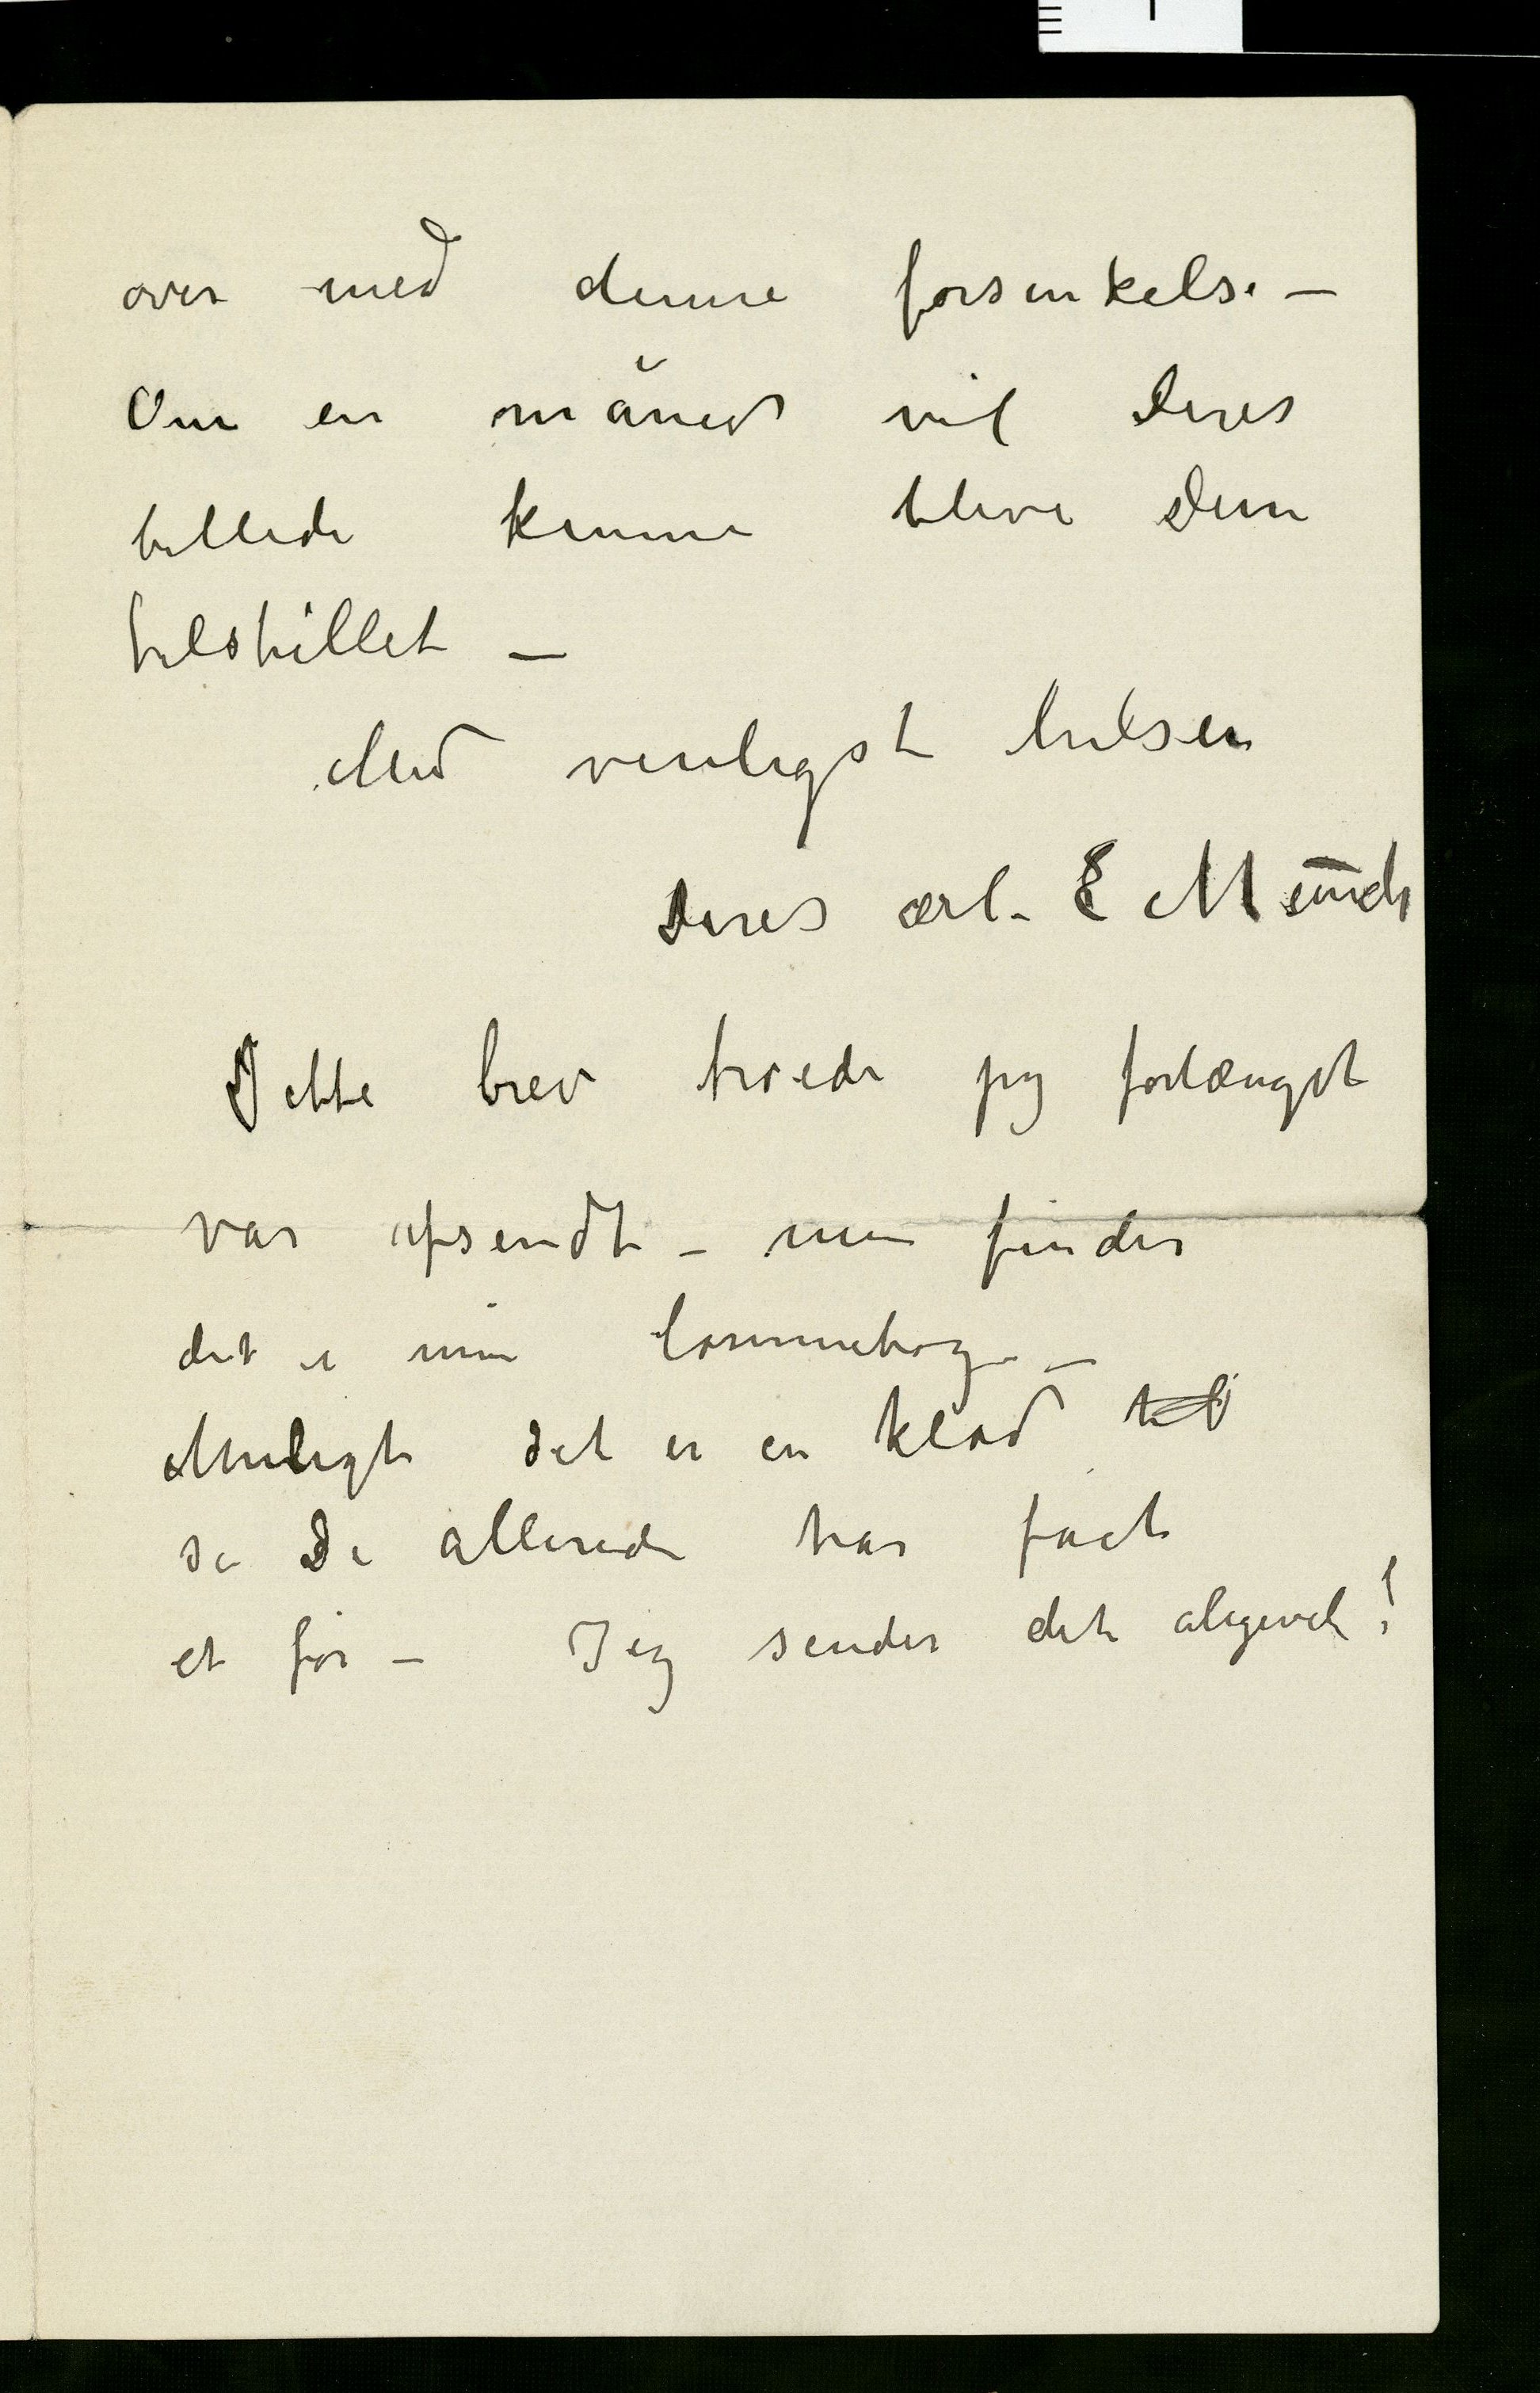 over med denne forsinkelse –
Om en måned vil Deres
billede kunne blive Dem
tilstillet –
Med venligst hilsen
Deres ærl. E Munch
Dette brev troede jeg forlængst
var afsendt – men finder
det i min lommebog –
Muligt det er en klad til
så De allerede har fået
et før – Jeg sender det aligevel!